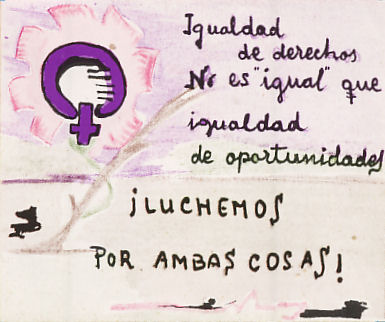 Igualdad
de derechos
No es "igual" que
igualdad
de oportunidades
¡LUCHEMOS
POR AMBAS COSAS!